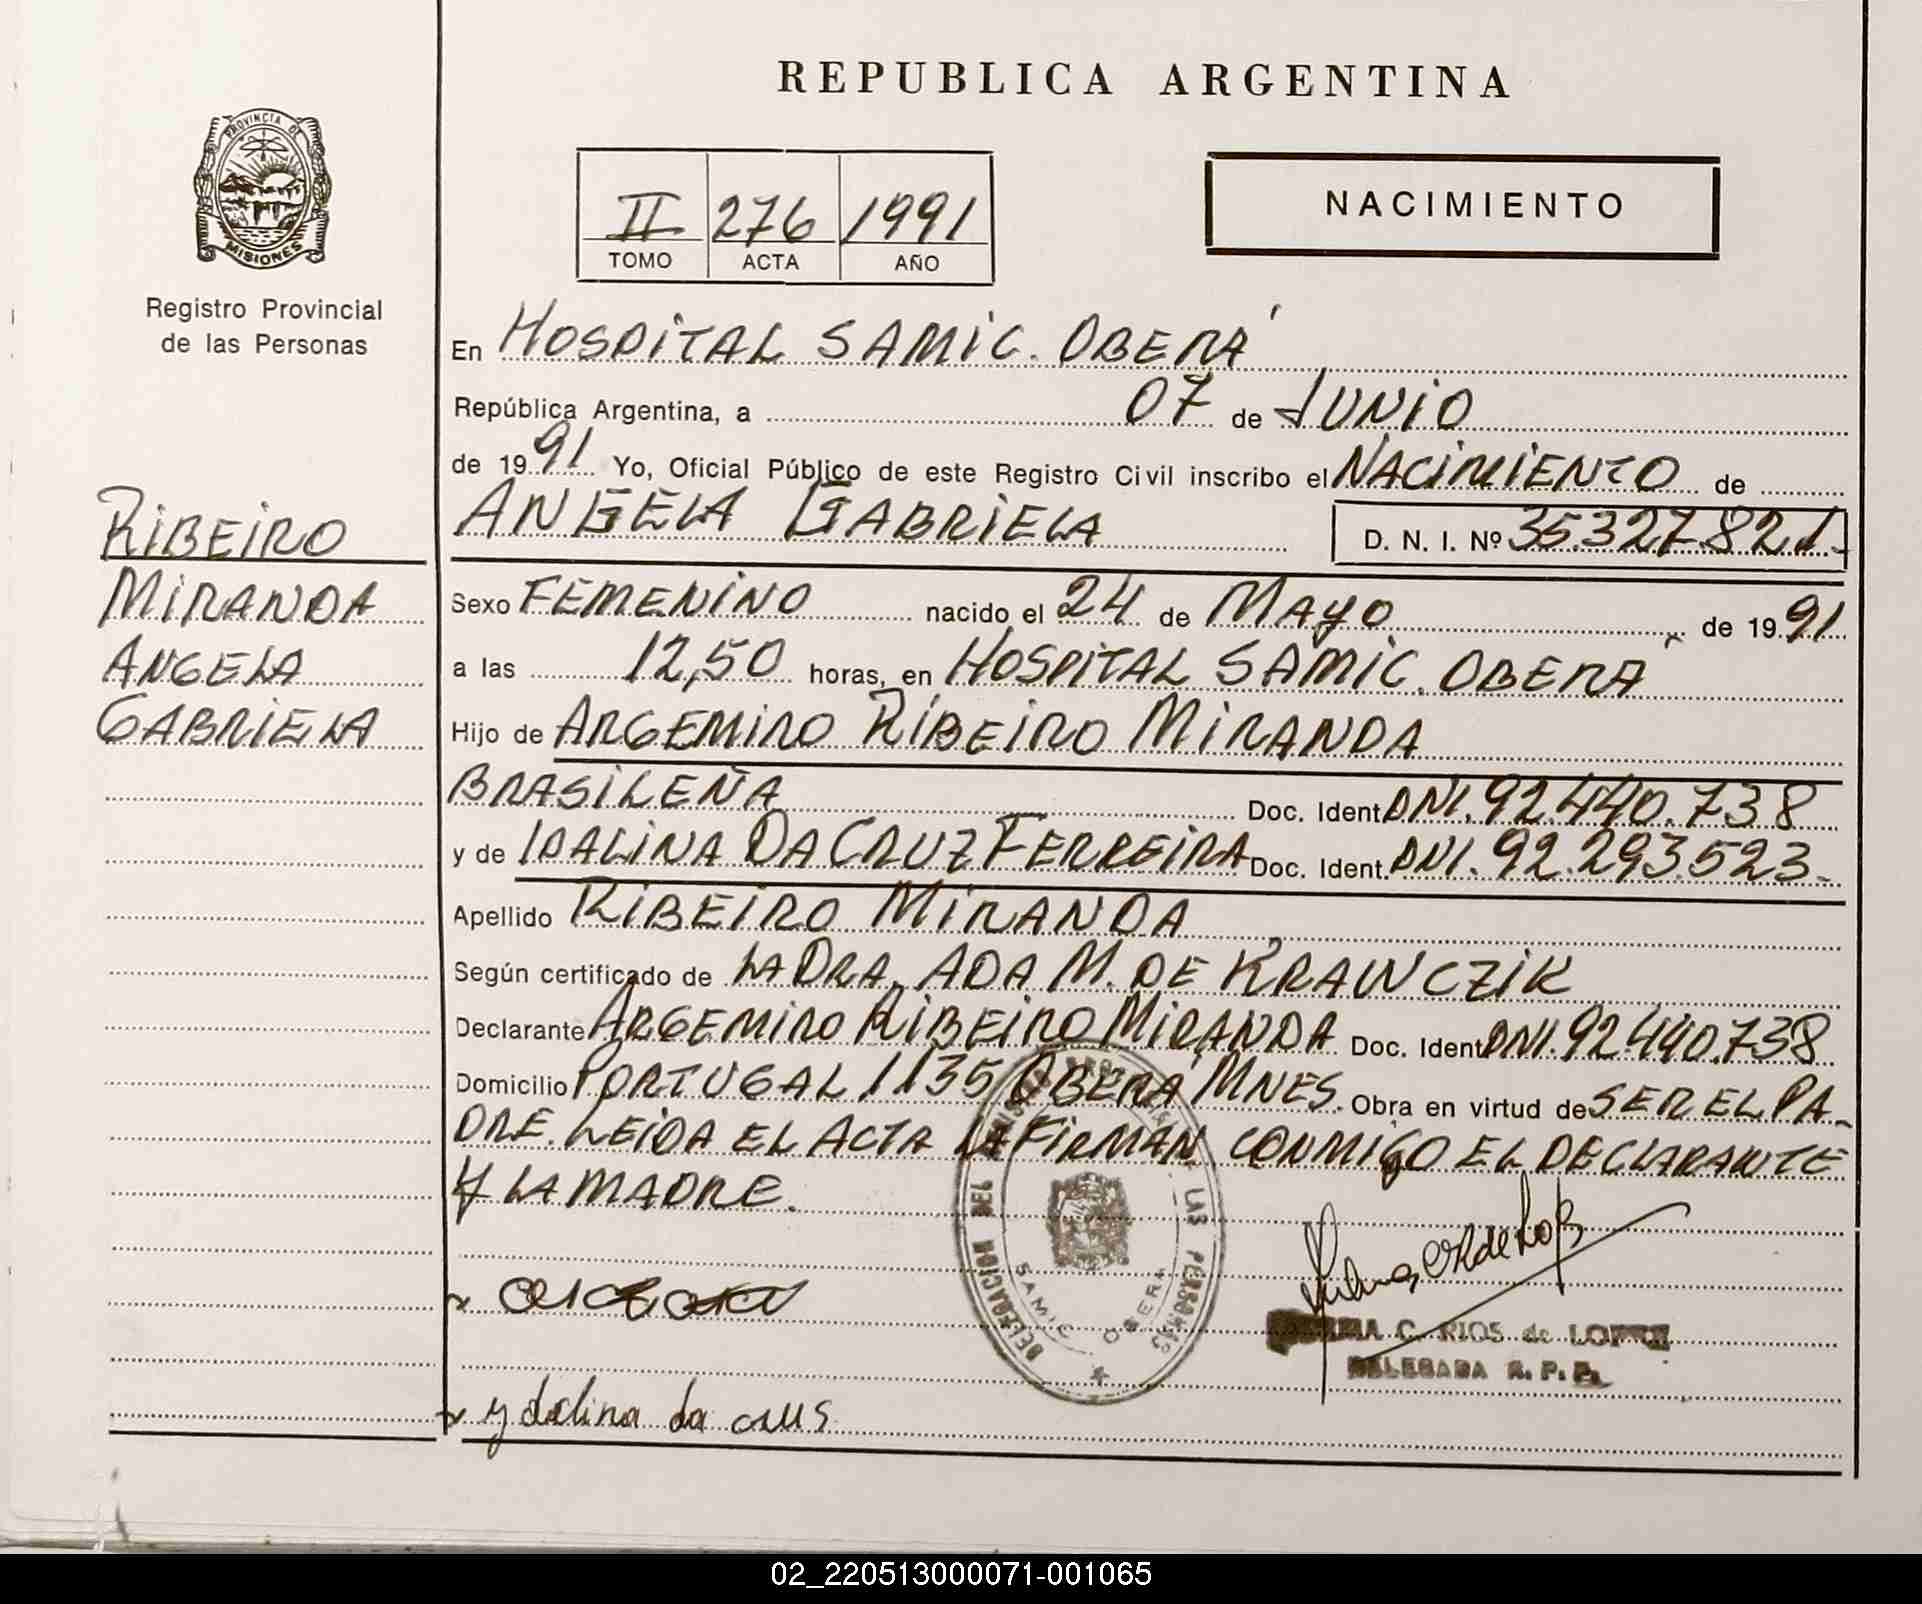 REPUBLICA ARGENTINA
PROVINCIA DE MISIONES
Registro Provincial
de las Personas
II 276 1991
TOMO ACTA AÑO
NACIMIENTO
En HOSPITAL SAMIC. OBERÁ
República Argentina, a 07 de JUNIO
de 1991 Yo, Oficial Público de este Registro Civil inscribo el NACIMIENTO de
ANGELA GABRIELA D. N. I. Nº 35.327.821.-
RIBEIRO
MIRANDA
ANGELA
GABRIELA
Sexo FEMENINO nacido el 24 de MAYO de 1991
a las 12,50 horas, en HOSPITAL SAMIC. OBERA
Hijo de ARGEMIRO RIBEIRO MIRANDA
BRASILEÑA Doc. Ident. DNI. 92.440.738
y de IDALINA DA CRUZ FERREIRA Doc. Ident. DNI. 92.293.523.-
Apellido RIBEIRO MIRANDA
Según certificado de LA DRA. ADA M. DE KRAWCZIK
Declarante ARGEMIRO RIBEIRO MIRANDA Doc. Ident DNI. 92.440.738
Domicilio PORTUGAL 1135 OBERÁ MNES. Obra en virtud de SER EL PA-
DRE. LEIDA EL ACTA LA FIRMAN CONMIGO EL DECLARANTE
Y LA MADRE.
DELEGACION DEL LAS PERSONAS
SAMIC OBERA
C. RIOS de LOPEZ
DELEGADA R. P. P.
ydalina da crus
02_220513000071-001065